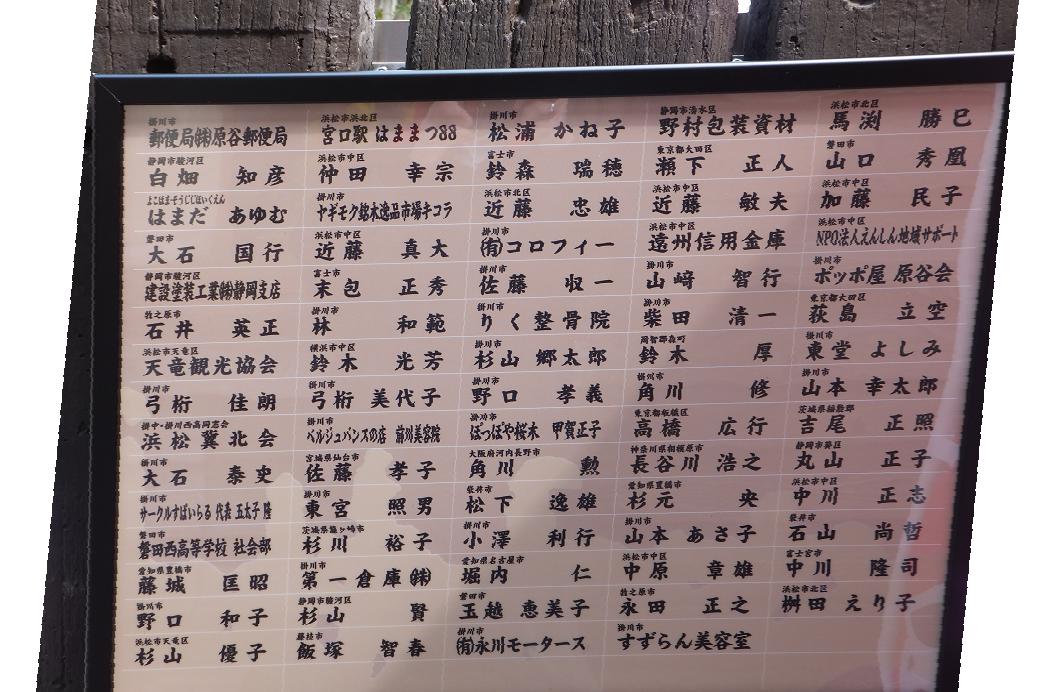 掛川市 郵便局㈱原谷郵便局
浜松市浜北区 宮口駅 はままつ88
掛川市 松浦 かね子
静岡市清水区 野村包装資材
浜松市北区 馬渕 勝巳
静岡市駿河区 白畑 知彦
浜松市中区 仲田 幸宗
富士市 鈴森 瑞穂
東京都大田区 瀬下 正人
磐田市 山口 秀凰
よこはまそうじじほいくえん はまだ あゆむ
掛川市 ヤギモク銘木逸品市場キコラ
浜松市北区 近藤 忠雄
浜松市中区 近藤 敏夫
浜松市中区 加藤 民子
磐田市 大石 国行
浜松市中区 近藤 真大
掛川市 ㈲コロフィー
浜松市中区 遠州信用金庫
浜松市中区 NPO法人えんしん地域サポート
静岡市駿河区 建設塗装工業㈱静岡支店
富士市 末包 正秀
掛川市 佐藤 収一
掛川市 山﨑 智行
掛川市 ポッポ屋 原谷会
牧之原市 石井 英正
掛川市 林 和範
掛川市 りく整骨院
掛川市 柴田 清一
東京都大田区 荻島 立空
浜松市天竜区 天竜観光協会
横浜市中区 鈴木 光芳
掛川市 杉山 郷太郎
周智郡森町 鈴木 厚
掛川市 東堂 よしみ
掛川市 弓桁 佳朗
掛川市 弓桁 美代子
掛川市 野口 孝義
掛川市 角川 修
掛川市 山本 幸太郎
掛中・掛川西高同志会 浜松冀北会
掛川市 ベルジュバンスの店 前川美容院
掛川市 ぽっぽや桜木 甲賀正子
東京都板橋区 高橋 広行
茨城県稲敷郡 吉尾 正照
掛川市 大石 泰史
宮城県仙台市 佐藤 孝子
大阪府河内長野市 角川 勲
神奈川県相模原市 長谷川 浩之
静岡市葵区 丸山 正子
掛川市 サークルすぱいらる 代表 五太子 隆
掛川市 東宮 照男
袋井市 松下 逸雄
愛知県豊橋市 杉元 央
浜松市中区 中川 正志
磐田市 磐田西高等学校 社会部
茨城県龍ヶ崎市 杉川 裕子
掛川市 小澤 利行
掛川市 山本 あさ子
袋井市 石山 尚哲
愛知県豊橋市 藤城 匡昭
掛川市 第一倉庫㈱
愛知県名古屋市 堀内 仁
浜松市中区 中原 章雄
富士宮市 中川 隆司
掛川市 野口 和子
静岡市駿河区 杉山 賢
磐田市 玉越 恵美子
牧之原市 永田 正之
浜松市北区 桝田 えり子
浜松市天竜区 杉山 優子
藤枝市 飯塚 智春
掛川市 ㈲永川モータース
掛川市 すずらん美容室